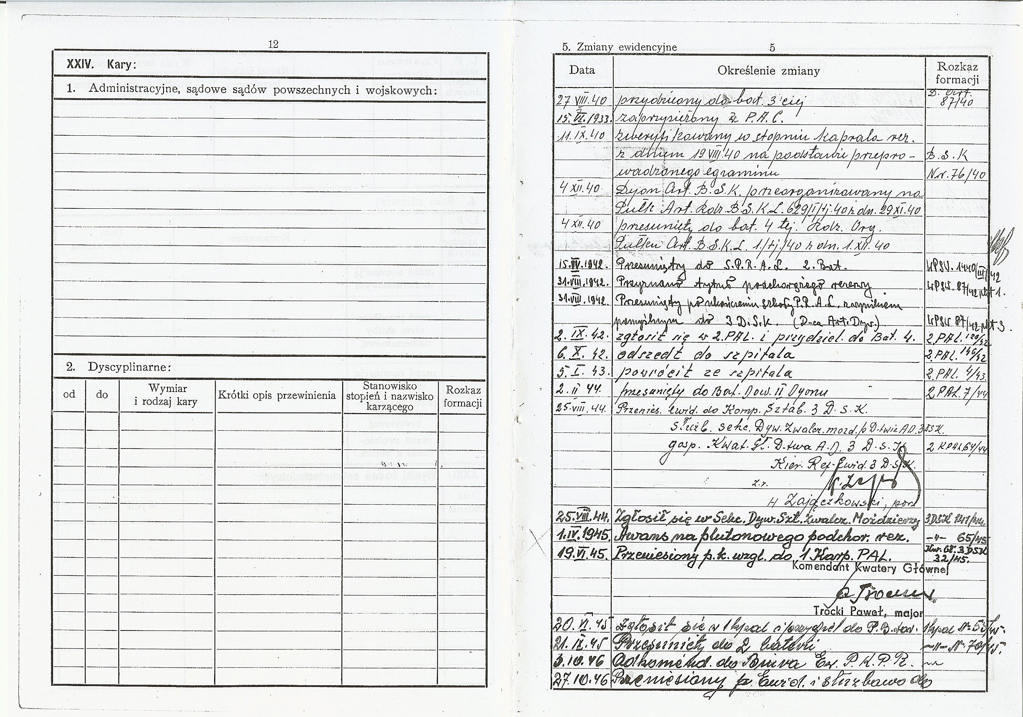 12
XXIV. Kary:
1. Administracyjne, sądowe sądów powszechnych i wojskowych:
2. Dyscyplinarne:
od do Wymiar i rodzaj kary Krótki opis przewinienia Stanowisko stopień i nazwisko karzącego Rozkaz formacji
5. Zmiany ewidencyjne 5
Data Określenie zmiany Rozkaz formacji
27 VIII.40 przydzielony do bat. 3 ciej 87/40
15.VI.1933. zaprzysiężony z P.A.C.
11.IX.40 zweryfikowany w stopniu kaprala rez.
z dniem 19 VIII 40 na podstawie przepro- B.S.K
wadzonego egzaminu Nr. 76/40
4 XII.40 Dyon Art. B.S.K. przeorganizowany na
Pułk Art. Rozk. B.S.K L. 629/I/tj.40 z dn. 29 XI.40
4 XII.40 przesunięty do bat. 4 tej. Rozk. Org.
Pułku Art. B.S.K. L. 1/tj/40 z dn. 1.XII.40
15.IV.1942. Przesunięty do S.P.R.A.L. 2. Bat.
31.VIII.1942. Przyznano tytuł podchorążego rezerwy
31.VIII.1942. Przesunięty po ukończeniu szkoły P.R.A.L. z wynikiem
pomyślnym do 3 D.S.K. (D-ca Art. Dyw.)
2. IX. 42. zgłosił się w 2.PAL. i przydziel. do Bat. 4. 2.PAL.
6. X. 42. odszedł do szpitala 2.PAL. 140/42
5. I. 43. powrócił ze szpitala 2.PAL. 4/43
2. II 44. przesunięty do Bat. Dow. II Dyonu 2 PAL. 7/44
25.VIII.44. Przenies. ewid. do Komp. Sztab. 3 D.S.K.
służb. sekc. Dyw. Zwalcz. mozdz. p. D-twie A.D. 3 DSK
gosp. Kwat. Gł. D-twa A.D. 3 D.S.K
Kier. Ref. Ewid. 3 D.S.K.
z.r.
H Zajączkowski, por.
25.VIII.44. Zgłosił się w Sekc. Dyw. Szt. Zwalcz. Moździerzy
1.IV.1945. Awans na plutonowego podchor. rez. -"- 65/45
19.VI.45. Przeniesiony p.k. wzgl. do 1. Karp. PAL. Kw. Gł. 3 DSK 32/45.
Komendant Kwatery Głównej
Trocki Paweł, major
20.VI.45 Zgłosił się w 1 kpal i przydział do
21.VI.45 Przesunięty do 2 baterii
3.10.46 Odkomend. do Biura Ew. P.K.P.R.
27.10.46 Przeniesiony p. Ewid. i służbowo do